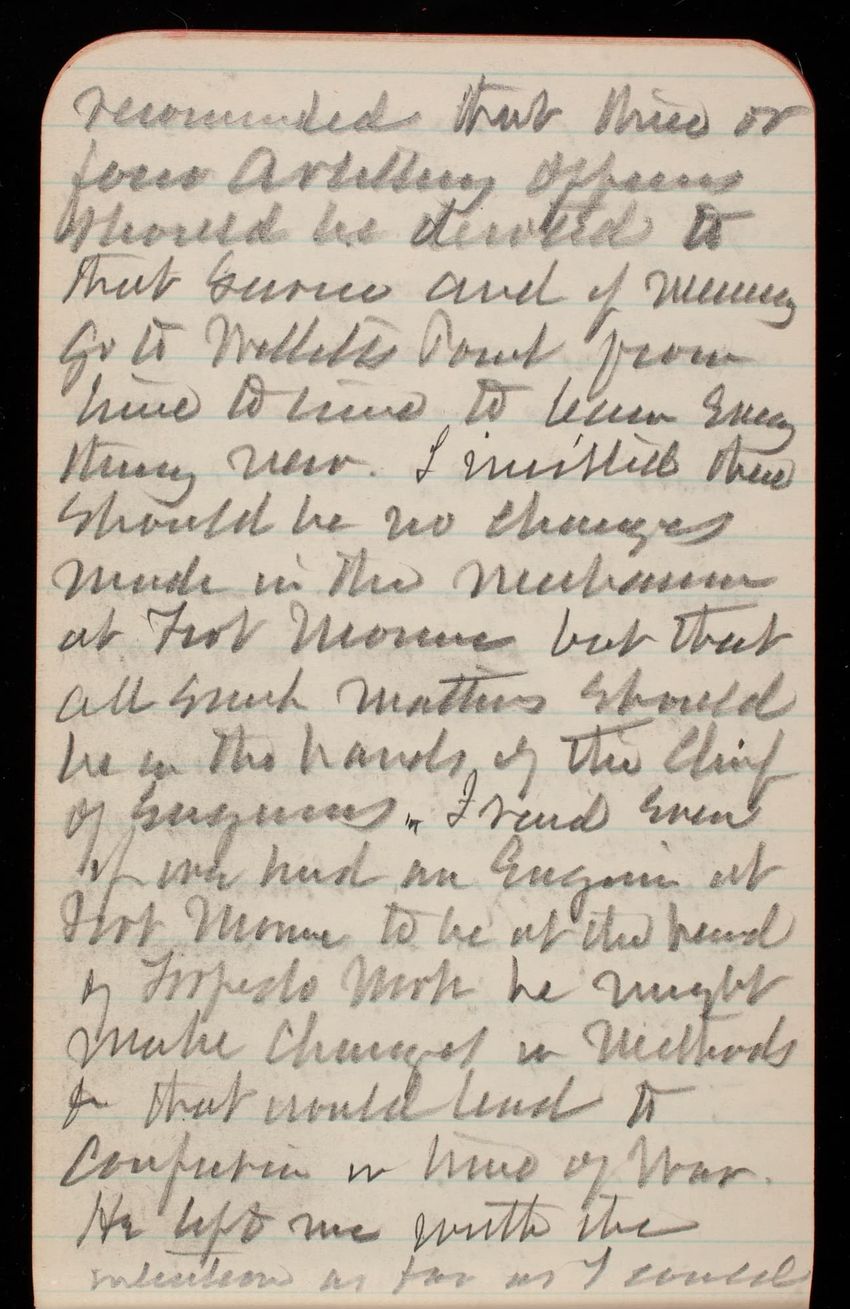 recommended that three or
four Artillery Officers
should be devoted to
that service and if necessary
go to Willetts Point from
time to time to learn every
thing new. I insisted there
should be no changes
made in the mechanism
at Fort Monroe but that
all such matters should
be in the hands of the Chief
of Engineers. I said even
if we had an Engineer at
Fort Monroe to be at the head
of Torpedo Work he might
make changes in methods
& that would lead to
confusion in time of War.
He left me with the
intention as far as I could